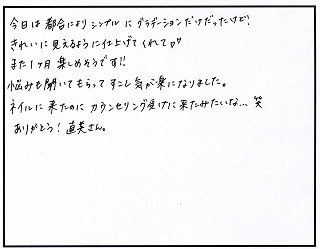 今日は都合によりシンプルにグラデーションだけだったけど!
きれいに見えるように仕上げてくれて♡♡
また1ヶ月 楽しめそうです!!
悩みも聞いてもらってすこし気が楽になりました。
ネイルに来たのにカウンセリング受けに来たみたいな… 笑
ありがとう! 直美さん。